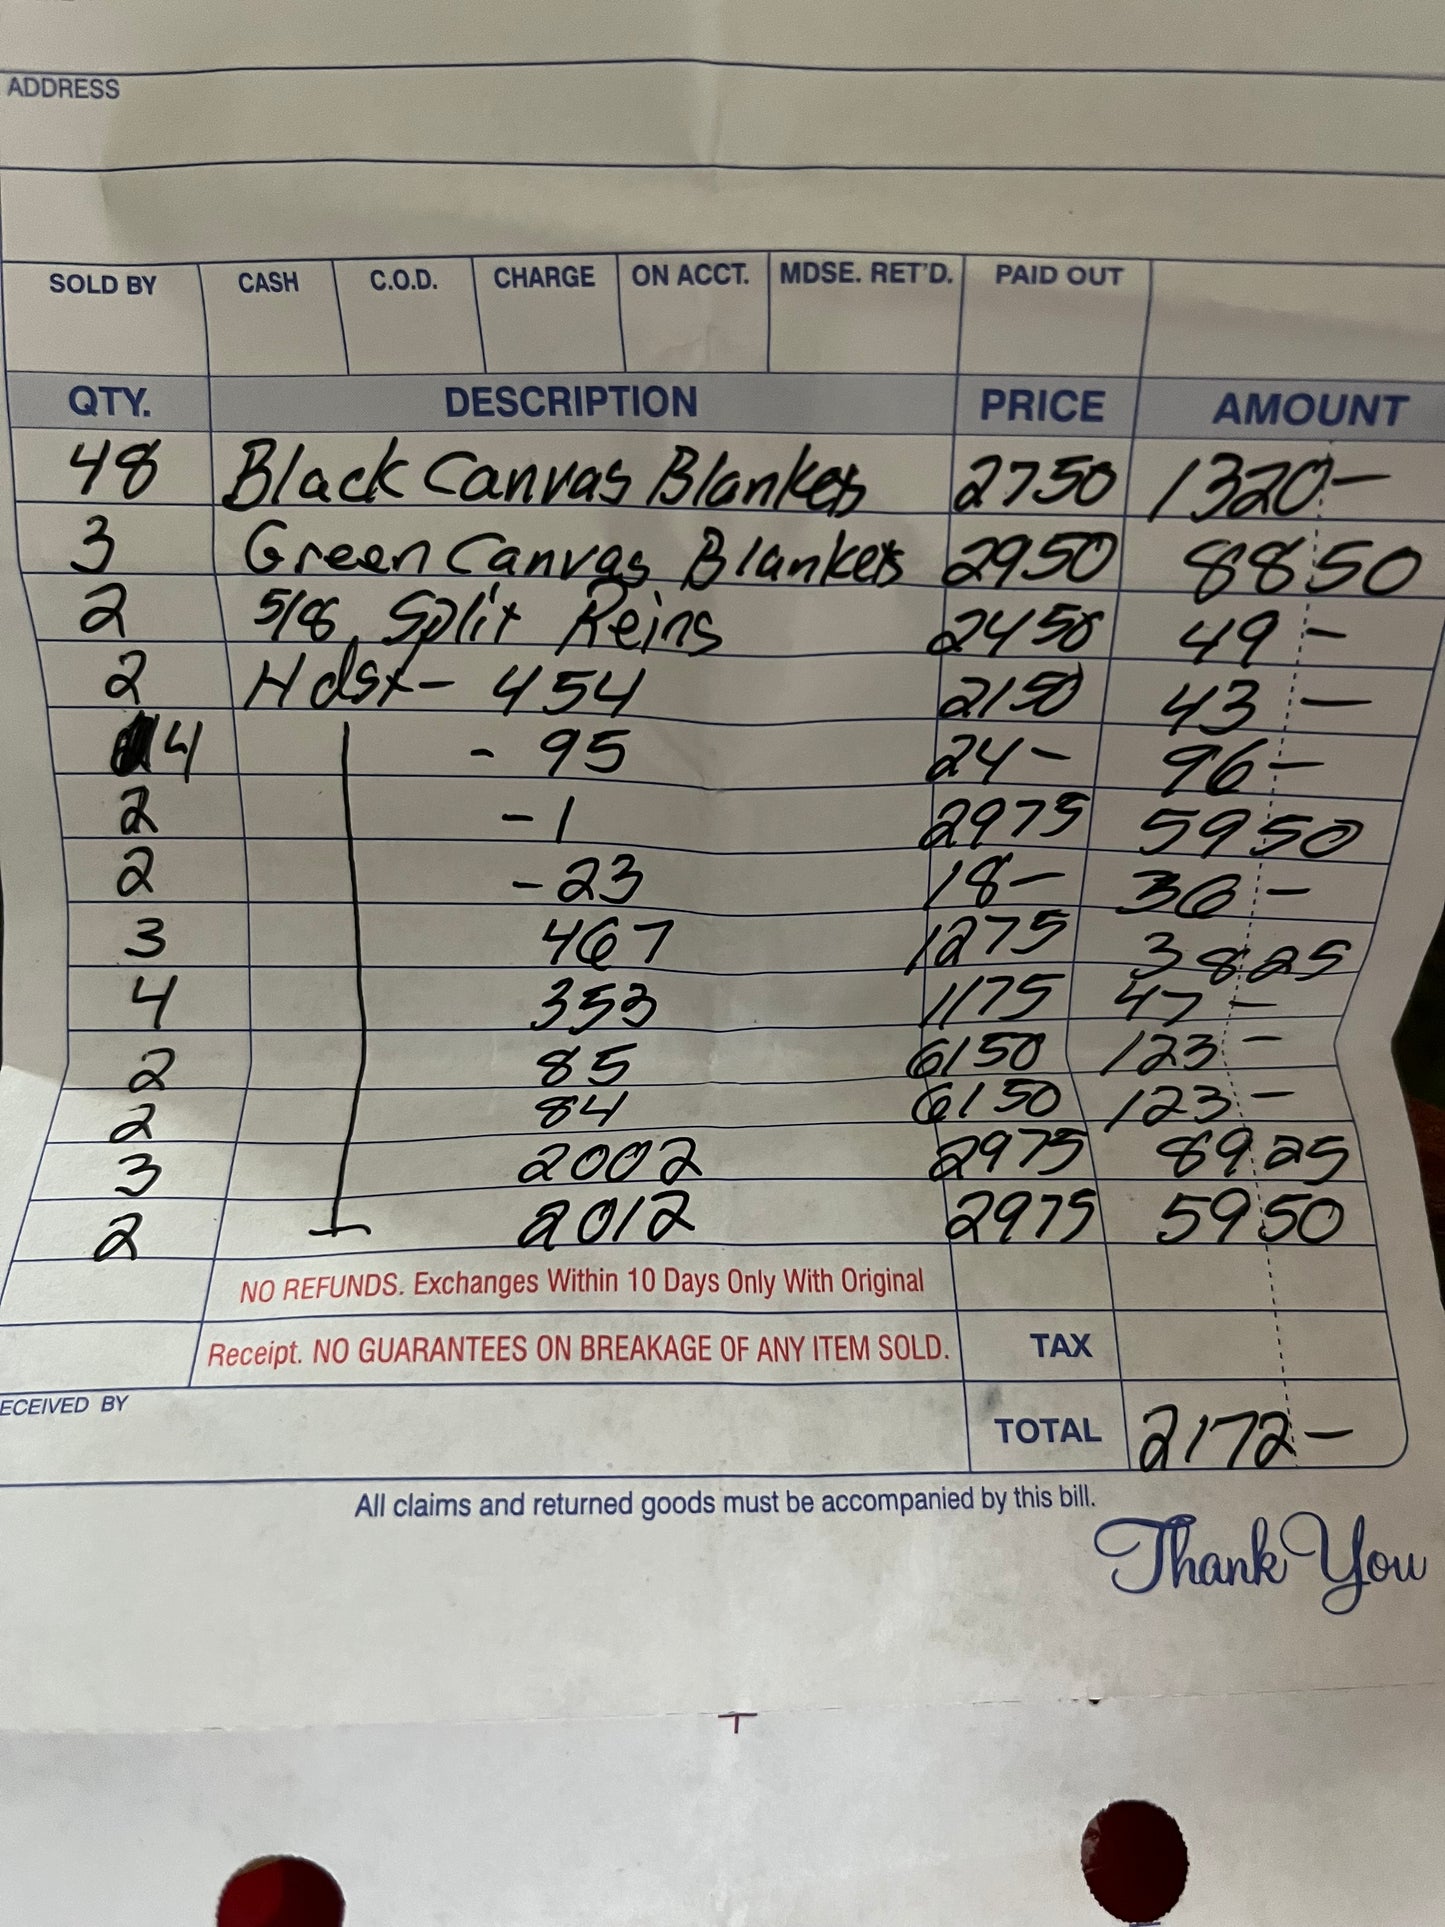 ADDRESS
SOLD BY CASH C.O.D. CHARGE ON ACCT. MDSE. RET'D. PAID OUT
QTY. DESCRIPTION PRICE AMOUNT
48 Black Canvas Blankets 2750 1320-
3 Green Canvas Blankets 2950 8850
2 5/8 Split Reins 2450 49-
2 Hdst- 454 2150 43-
4 - 95 24- 96-
2 -1 2975 5950
2 -23 18- 36-
3 467 1275 3825
4 353 1175 47-
2 85 6150 123-
2 84 6150 123-
3 2002 2975 8925
2 2012 2975 5950
NO REFUNDS. Exchanges Within 10 Days Only With Original
Receipt. NO GUARANTEES ON BREAKAGE OF ANY ITEM SOLD. TAX
ECEIVED BY
TOTAL 2172-
All claims and returned goods must be accompanied by this bill.
Thank You